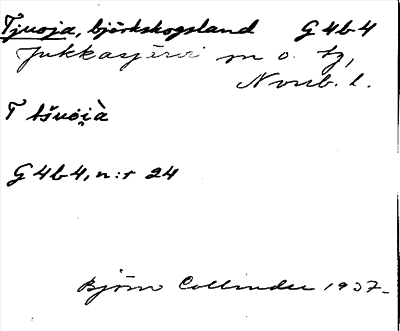 Tjuoja, björkskogsland G4b4
Jukkasjärvi m o. tg,
Norrb. l.
T tšuo̭i̭à
G4b4, n:r 24
Björn Collinder 1937